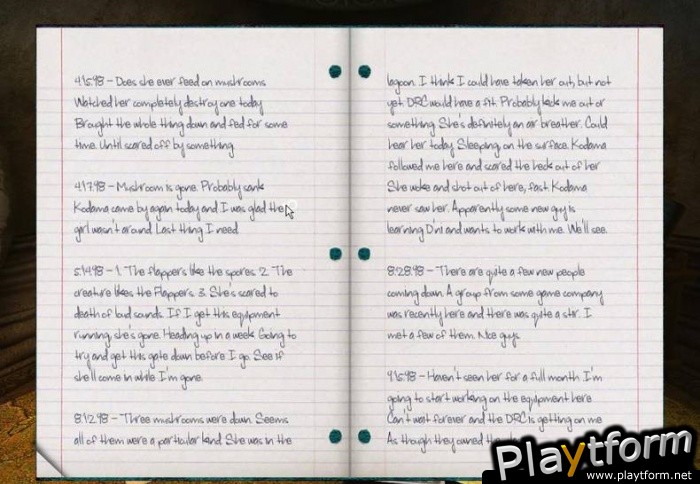 4.15.98 - Does she ever feed on mushrooms
Watched her completely destroy one today
Brought the whole thing down and fed for some
time. Until scared off by something.
4.17.98 - Mushroom is gone. Probably sank
Kodama came by again today and I was glad the
girl wasn't around. Last thing I need.
5.14.98 - 1. The flappers like the spores 2. The
creature likes the Flappers 3. She's scared to
death of loud sounds. If I get this equipment
running, she's gone. Heading up in a week. Going to
try and get this gate down before I go. See if
she'll come in while I'm gone.
8.12.98 - Three mushrooms were down. Seems
all of them were a particular kind. She was in the
lagoon. I think I could have taken her out, but not
yet. DRC would have a fit. Probably kick me out or
something. She's definitely an air breather. Could
hear her today. Sleeping on the surface. Kodama
followed me here and scared the heck out of her
She woke and shot out of here, fast. Kodama
never saw her. Apparently some new guy is
learning D'ni and wants to work with me. We'll see.
8.28.98 - There are quite a few new people
coming down. A group from some game company
was recently here and there was quite a stir. I
met a few of them. Nice guys.
9.15.98 - Haven't seen her for a full month. I'm
going to start working on the equipment here
Can't wait forever and the DRC is getting on me
As though they owned
Playtform
www.playtform.net